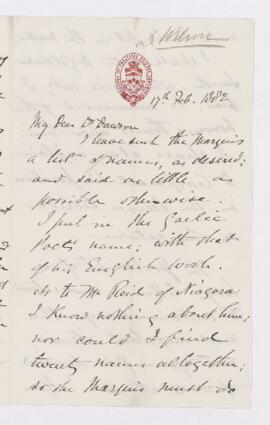 D Wilson
17th Feb. 1882
My Dear Dr Dawson
I have sent the Marquis
a list of names, as desired;
and said as little as
possible otherwise.
I put in the Gaelic
Poet's name; with that
of his English work.
As to Mr Reid of Niagara
I know nothing about him;
nor could I find
twenty names altogether;
so the Marquis must do